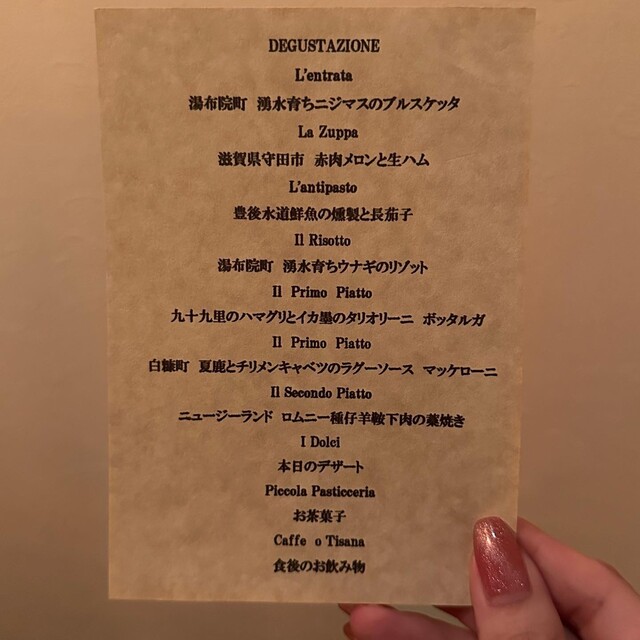 DEGUSTAZIONE
L'entrata
湯布院町 湧水育ちニジマスのブルスケッタ
La Zuppa
滋賀県守田市 赤肉メロンと生ハム
L'antipasto
豊後水道鮮魚の燻製と長茄子
Il Risotto
湯布院町 湧水育ちウナギのリゾット
Il Primo Piatto
九十九里のハマグリとイカ墨のタリオリーニ ボッタルガ
Il Primo Piatto
白糠町 夏鹿とチリメンキャベツのラグーソース マッケローニ
Il Secondo Piatto
ニュージーランド ロムニー種仔羊鞍下肉の藁焼き
I Dolci
本日のデザート
Piccola Pasticceria
お茶菓子
Caffe o Tisana
食後のお飲み物